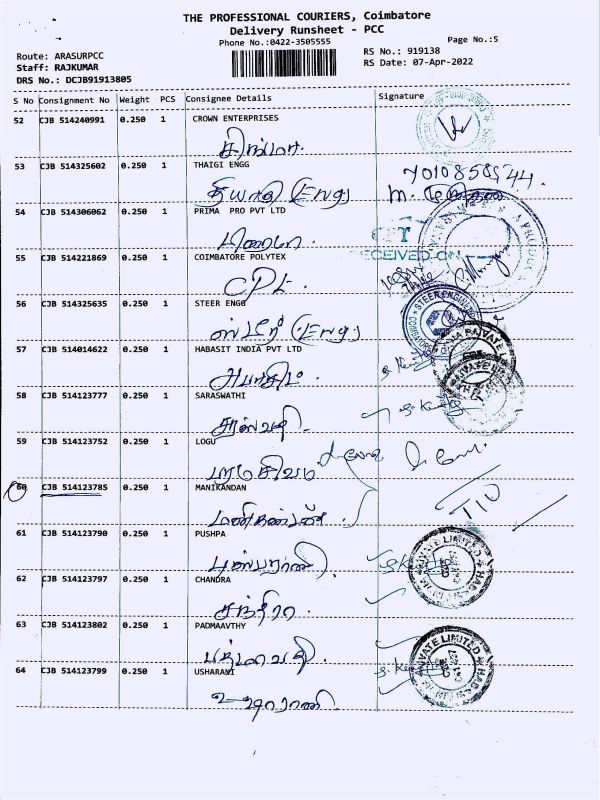 THE PROFESSIONAL COURIERS, Coimbatore
Delivery Runsheet - PCC
Phone No.:0422-3505555
Page No.:5
Route: ARASURPCC
RS No.: 919138
Staff: RAJKUMAR
RS Date: 07-Apr-2022
DRS No.: DCJB91913805
S No Consignment No Weight PCS Consignee Details Signature
52 CJB 514240991 0.250 1 CROWN ENTERPRISES
53 CJB 514325602 0.250 1 THAIGI ENGG
7010858544.
தியாகி (Eng)
54 CJB 514306062 0.250 1 PRIMA PRO PVT LTD
55 CJB 514221869 0.250 1 COIMBATORE POLYTEX
CPL.
56 CJB 514325635 0.250 1 STEER ENGG
ஸ்டீர் (Eng)
57 CJB 514014622 0.250 1 HABASIT INDIA PVT LTD
அபாசிட்.
58 CJB 514123777 0.250 1 SARASWATHI
சரஸ்வதி.
59 CJB 514123752 0.250 1 LOGU
பரமசிவம்
60 CJB 514123785 0.250 1 MANIKANDAN
மணிகண்டன்
61 CJB 514123790 0.250 1 PUSHPA
புஸ்பராணி.
62 CJB 514123797 0.250 1 CHANDRA
சந்திரா.
63 CJB 514123802 0.250 1 PADMAAVTHY
பத்மாவதி.
64 CJB 514123799 0.250 1 USHARANI
உஷாராணி.